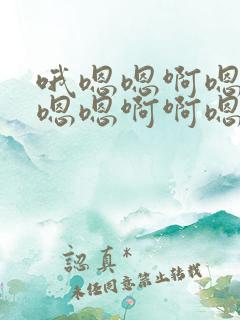 哦嗯嗯啊嗯
嗯嗯啊啊嗯
認真*
未经同意禁止转载